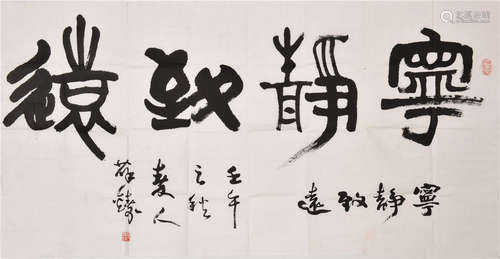 寧靜致遠
寧靜致遠
壬午
之秋